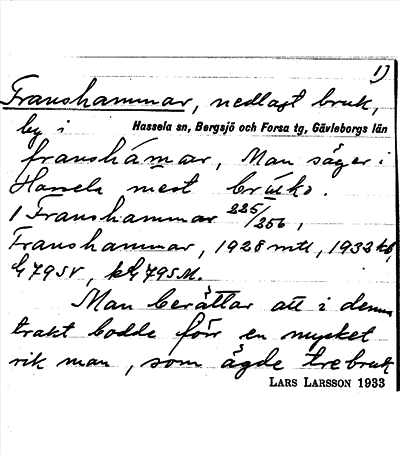 1)
Franshammar, nedlagt bruk,
by i Hassela sn, Bergsjö och Forsa tg, Gävleborgs län
franshámar, Man säger i
Hassela mest brúko.
1 Franshammar 225/256,
Franshammar, 1928 mtl, 1932 kb,
G795V, kG795M.
Man berättar att i denna
trakt bodde förr en mycket
rik man, som ägde tre bruk
LARS LARSSON 1933